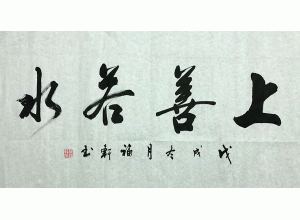 上善若水
戊戌冬月福軒書